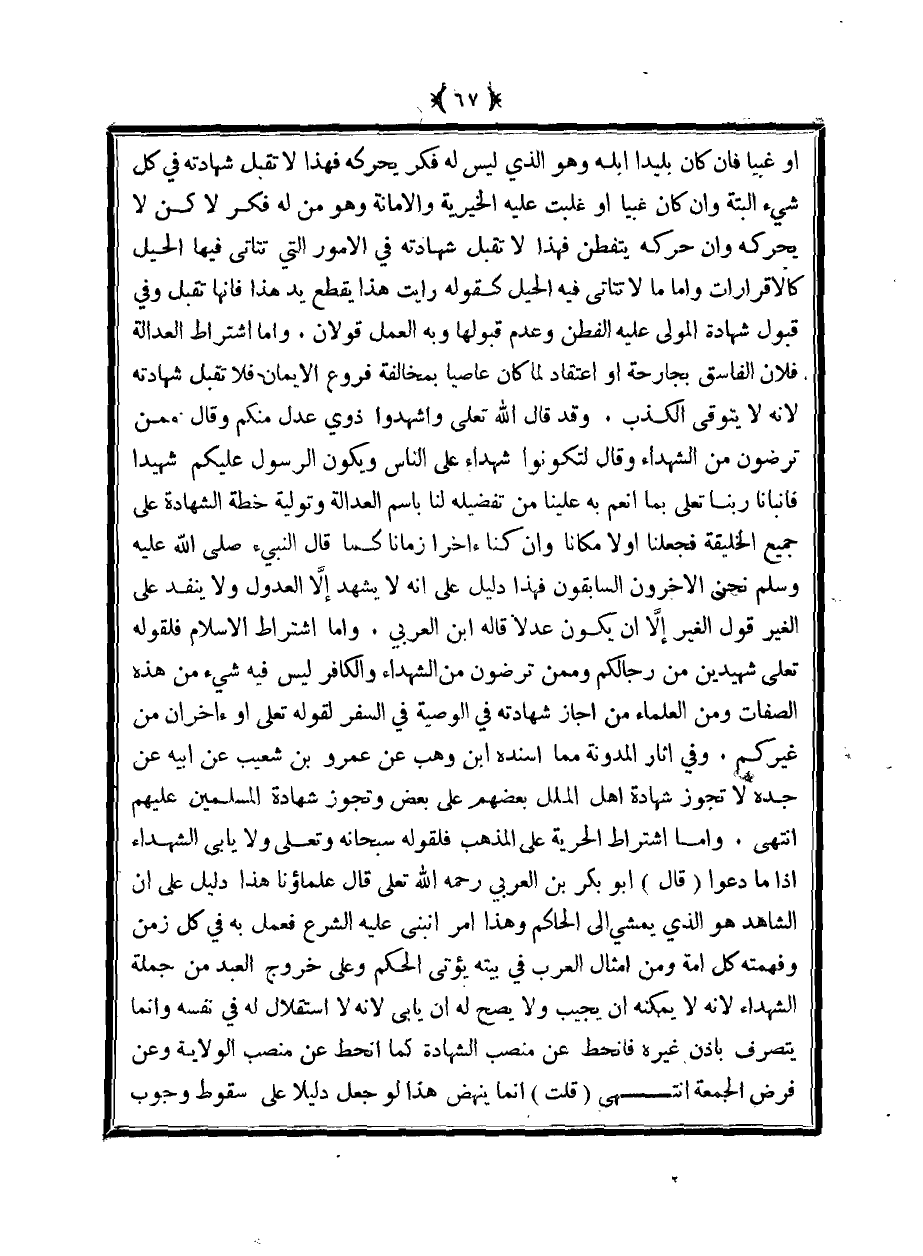 ﴿ ٦٧ ﴾
او غبيا فان كان بليدا ابله وهو الذي ليس له فكر يحركه فهذا لا تقبل شهادته في كل
شيء البتة وان كان غبيا او غلبت عليه الخيرية والامانة وهو من له فكر لا كن لا
يحركه وان حركه يتفطن فهذا لا تقبل شهادته في الامور التي تتاتى فيها الحيل
كالاقرارات واما ما لا تتاتى فيه الحيل كقوله رايت هذا يقطع يد هذا فانها تقبل وفي
قبول شهادة المولى عليه الفطن وعدم قبولها وبه العمل قولان . واما اشتراط العدالة
فلان الفاسق بجارحة او اعتقاد لما كان عاصيا بمخالفة فروع الايمان فلا تقبل شهادته
لانه لا يتوقى الكذب . وقد قال الله تعلى واشهدوا ذوي عدل منكم وقال ممن
ترضون من الشهداء وقال لتكونوا شهداء على الناس ويكون الرسول عليكم شهيدا
فانبانا ربنا تعلى بما انعم به علينا من تفضيله لنا باسم العدالة وتولية خطة الشهادة على
جميع الخليقة فجعلنا اولا مكانا وان كنا ءاخرا زمانا كما قال النبيء صلى الله عليه
وسلم نحن الاخرون السابقون فهذا دليل على انه لا يشهد إلَّا العدول ولا ينفد على
الغير قول الغير إلَّا ان يكون عدلا قاله ابن العربي . واما اشتراط الاسلام فلقوله
تعلى شهيدين من رجالكم وممن ترضون من الشهداء والكافر ليس فيه شيء من هذه
الصفات ومن العلماء من اجاز شهادته في الوصية في السفر لقوله تعلى او ءاخران من
غيركم . وفي اثار المدونة مما اسنده ابن وهب عن عمرو بن شعيب عن ابيه عن
جده لا تجوز شهادة اهل الملل بعضهم على بعض وتجوز شهادة المسلمين عليهم
انتهى . واما اشتراط الحرية على المذهب فلقوله سبحانه وتعلى ولا يابى الشهداء
اذا ما دعوا ( قال ) ابو بكر بن العربي رحمه الله تعلى قال علماؤنا هذا دليل على ان
الشاهد هو الذي يمشي الى الحاكم وهذا امر انبنى عليه الشرع فعمل به في كل زمن
وفهمته كل امة ومن امثال العرب في بيته يؤتى الحكم وعلى خروج العبد من جملة
الشهداء لانه لا يمكنه ان يجيب ولا يصح له ان يابى لانه لا استقلال له في نفسه وانما
يتصرف باذن غيره فانحط عن منصب الشهادة كما انحط عن منصب الولاية وعن
فرض الجمعة انتهى ( قلت ) انما ينهض هذا لو جعل دليلا على سقوط وجوب
٢